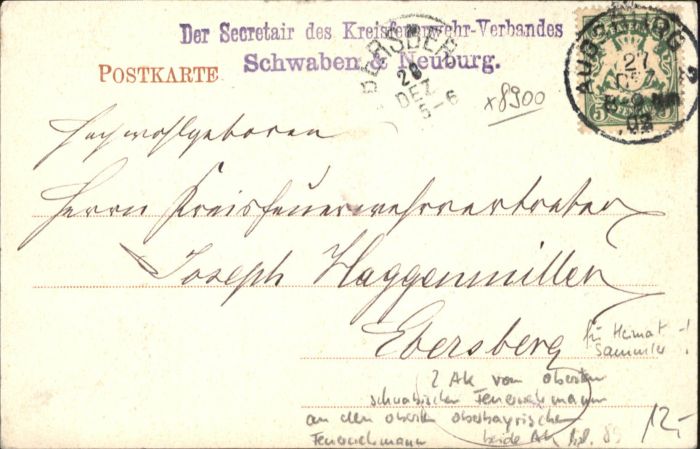 Der Secretair des Kreisfeuerwehr-Verbandes
Schwaben & Neuburg.
POSTKARTE
EBERSBERG
28
DEZ
5-6
AUGSBURG 2
27
DEZ
02
5
x8900
Hochwohlgeboren
Herrn Kreisfeuerwehrvertreter
Joseph Haggenmiller
Ebersberg
für Heimat-!
sammler
2 Ak vom obersten
schwäbischen Feuerwehrmann
an den obersten oberbayrischen
Feuerwehrmann beide Ak
12,-